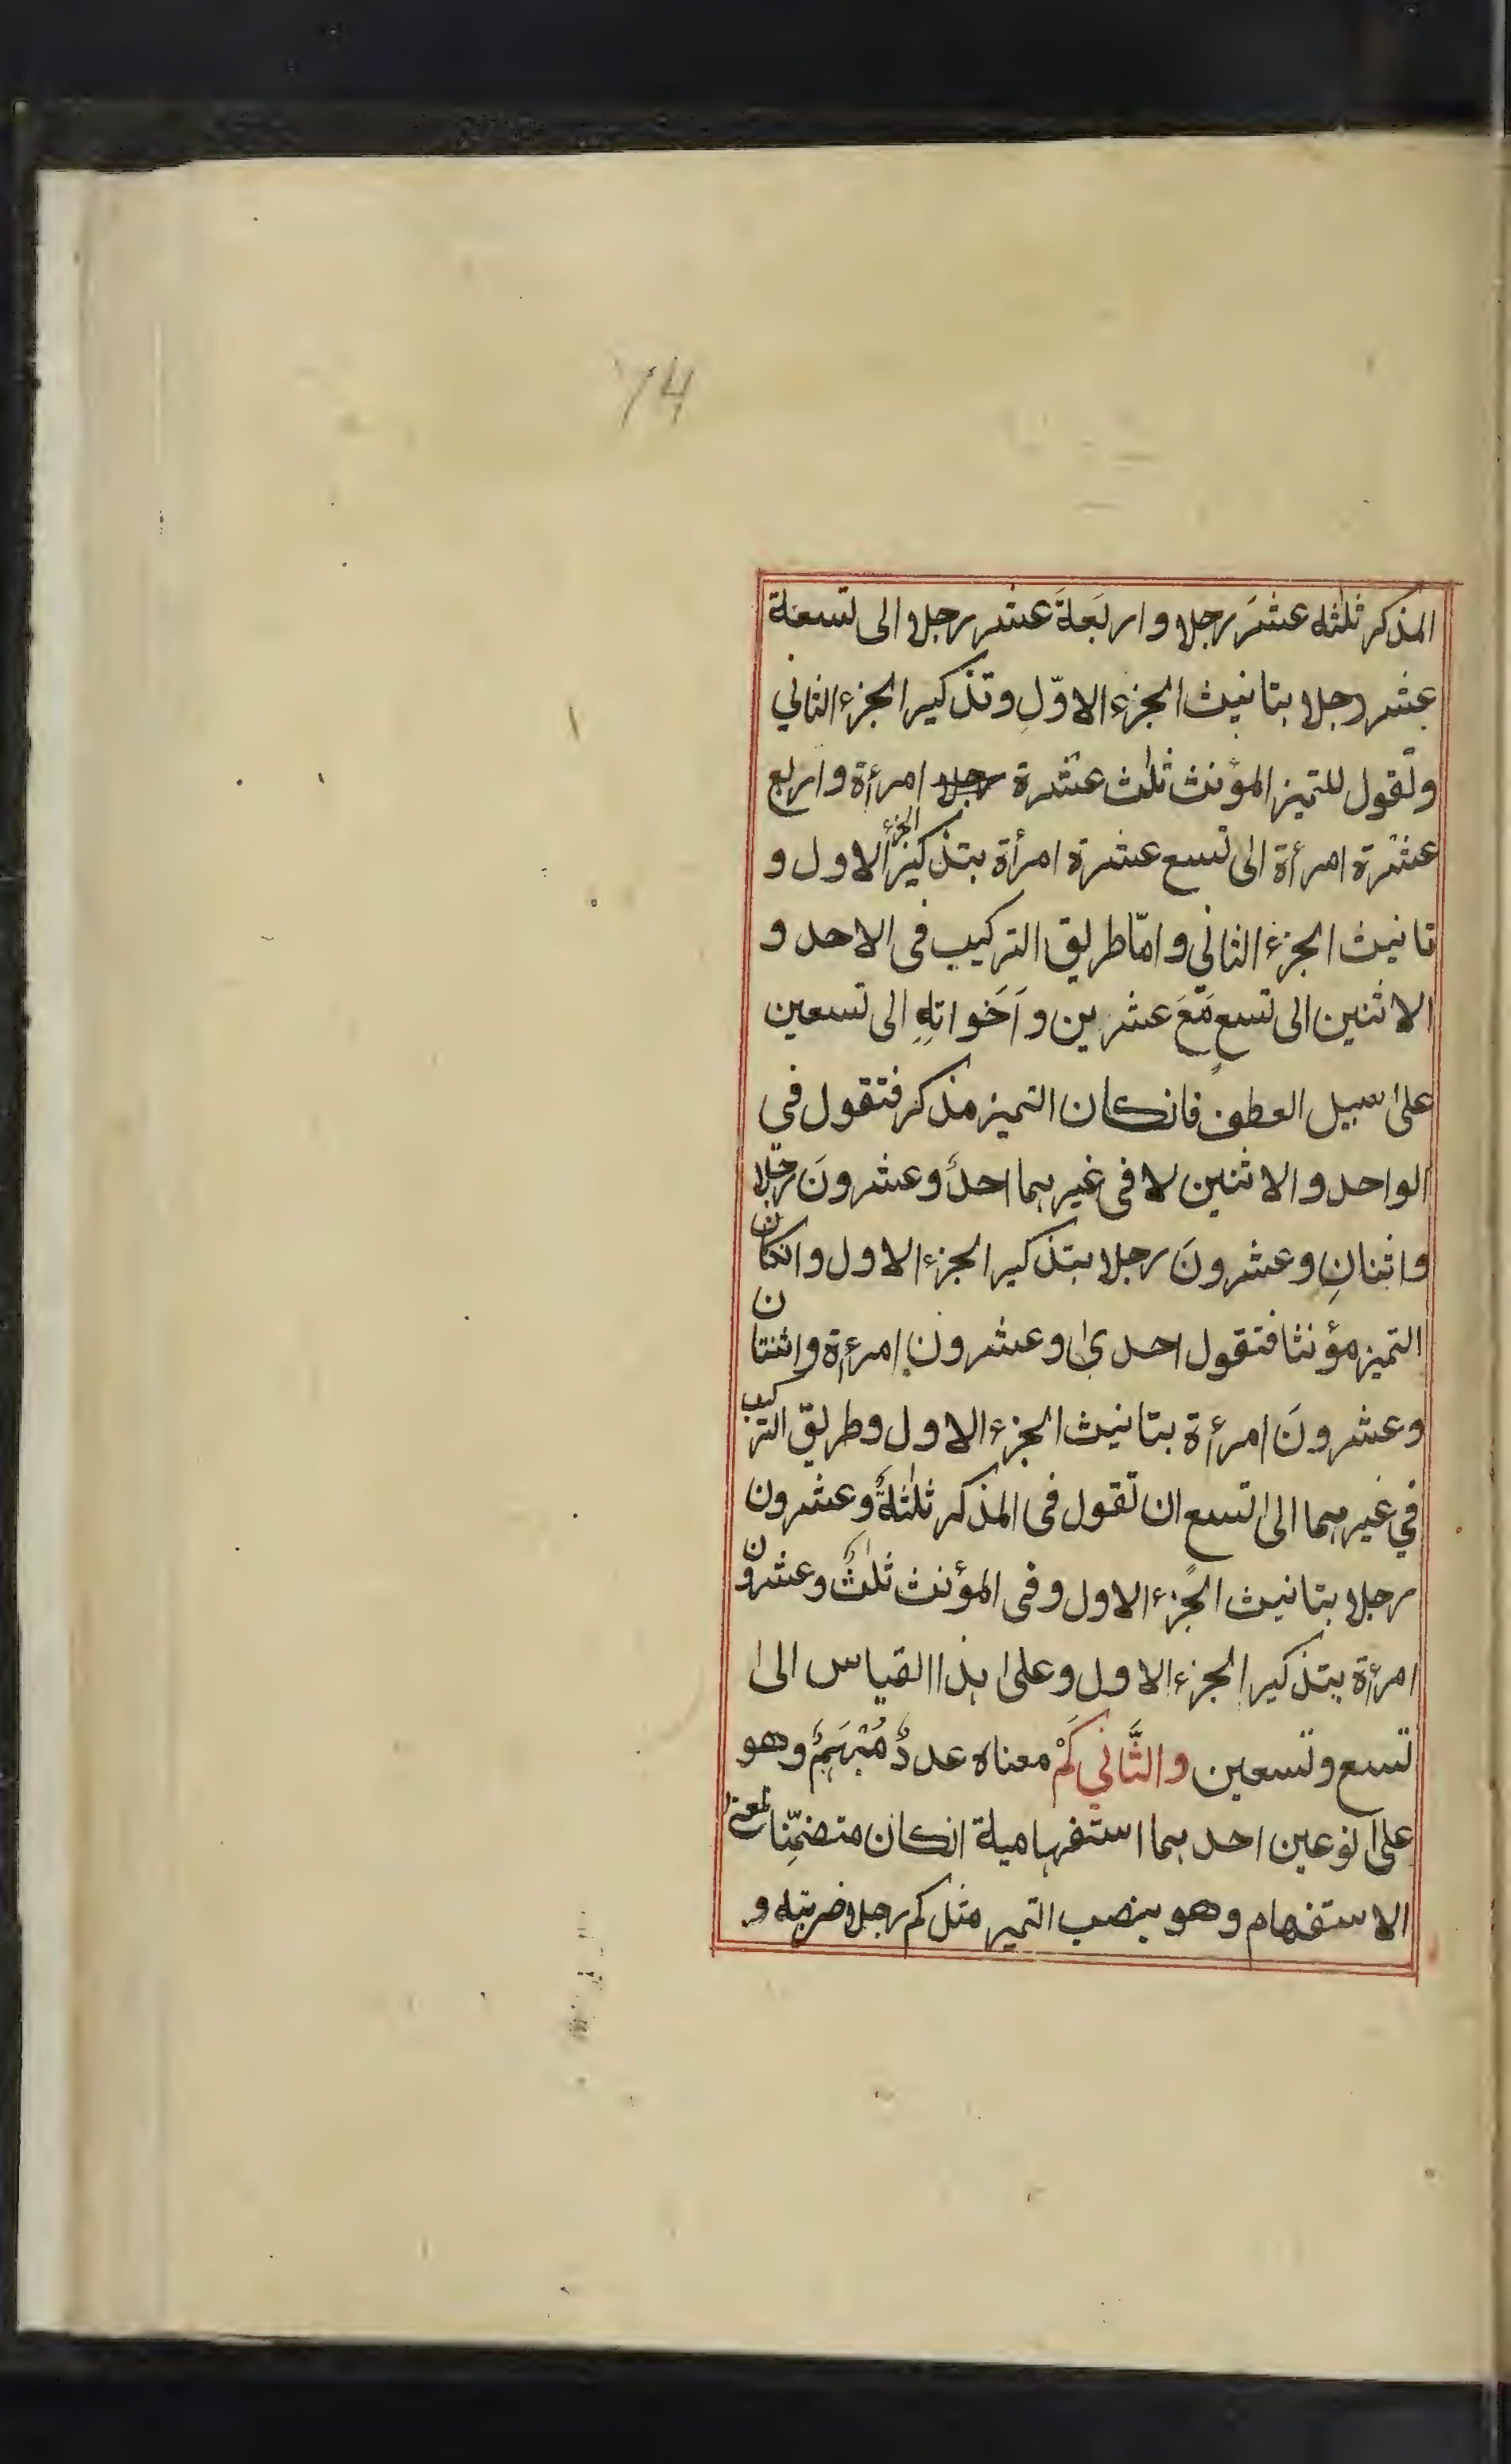 74
المذكر ثلثه عشَرَ رجلا واربَعةَ عشر رجلا الى تسعة
عشر رجلا بتانيث الجزء الاوّلِ وتذكير الجزء الثاني
وتقول للتميز المؤنث ثلٰث عشرة رجلا امرأة واربع
عشرة امرأة الى تسع عشرة امرأة بتذكير الجزء الاول و
تانيث الجزء الثاني وامّا طريق التركيب فى الاحد و
الاثنين الى تسعٍ مَعَ عشرين وَاَخَواتِهٖ الى تسعين
علىٰ سبيل العطف فانكان التميز مذكر فتقول في
الواحد والاثنين لا فى غيرهما احدٌ وعشرونَ رجلا
واثنانِ وعشرونَ رجلا بتذكير الجزء الاول وانكان
التميز مؤنثا فتقول احدىٰ وعشرون امرءة واثنتان
وعشرونَ امرءة بتانيث الجزء الاول وطريق التركيب
في غيرهما الىٰ تسعٍ ان تقول فى المذكر ثلٰثةٌ وعشرون
رجلا بتانيث الجزء الاول وفى المؤنث ثلٰثٌ وعشرون
امرءة بتذكير الجزء الاول وعلىٰ هذا القياس الىٰ
تسع وتسعين والثَّاني كَمْ معناه عددٌ مُبْهَمٌ وهو
علىٰ نوعين احدهما استفهامية انكان متضمِّنا لمعنى
الاستفهام وهو ينصب التميز مثل كم رجلا ضربته و